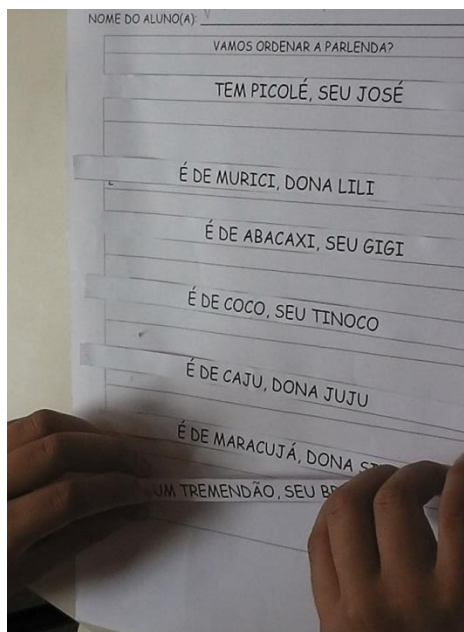 NOME DO ALUNO(A):
VAMOS ORDENAR A PARLENDA?
TEM PICOLÉ, SEU JOSÉ
É DE MURICI, DONA LILI
É DE ABACAXI, SEU GIGI
É DE COCO, SEU TINOCO
É DE CAJU, DONA JUJU
É DE MARACUJÁ, DONA
UM TREMENDÃO, SEU